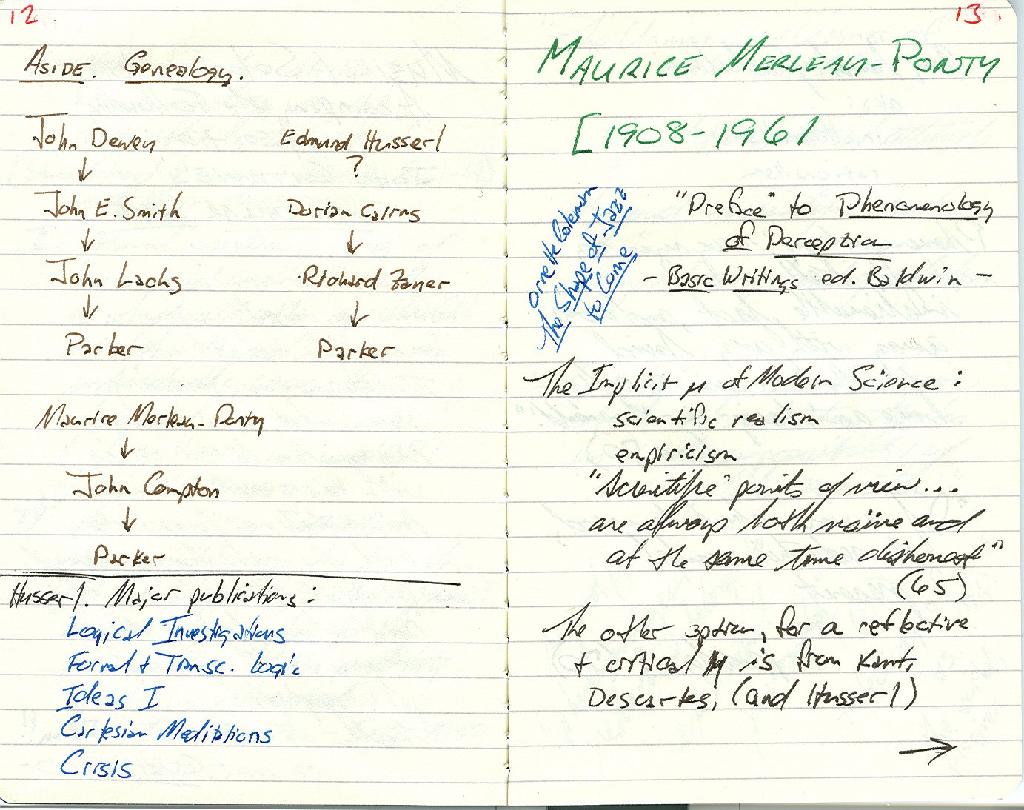 12
ASIDE. Genealogy.
John Dewey
↓
John E. Smith
↓
John Lachs
↓
Parker
Edmund Husserl
?
Dorian Cairns
↓
Richard Zaner
↓
Parker
Maurice Merleau-Ponty
↓
John Compton
↓
Parker
Husserl. Major publications:
Logical Investigations
Formal + Transc. Logic
Ideas I
Cartesian Meditations
Crisis
13.
MAURICE MERLEAU-PONTY
[1908-1961
Ornette Coleman
The Shape of Jazz
to Come
"Preface" to Phenomenology
of Perception
- Basic Writings ed. Baldwin -
The Implicit μ of Modern Science:
scientific realism
empiricism
"Scientific" points of view...
are always both naïve and
at the same time dishonest"
(65)
The other option, for a reflective
+ critical μ is from Kant,
Descartes, (and Husserl)
→